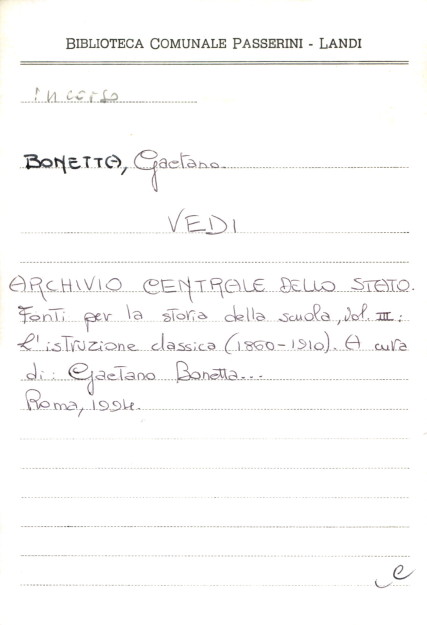 BIBLIOTECA COMUNALE PASSERINI - LANDI
in corso
BONETTA, Gaetano.
VEDI
ARCHIVIO CENTRALE DELLO STATO.
Fonti per la storia della scuola, vol. III:
L'istruzione classica (1860-1910). A cura
di: Gaetano Bonetta...
Roma, 1994.
e